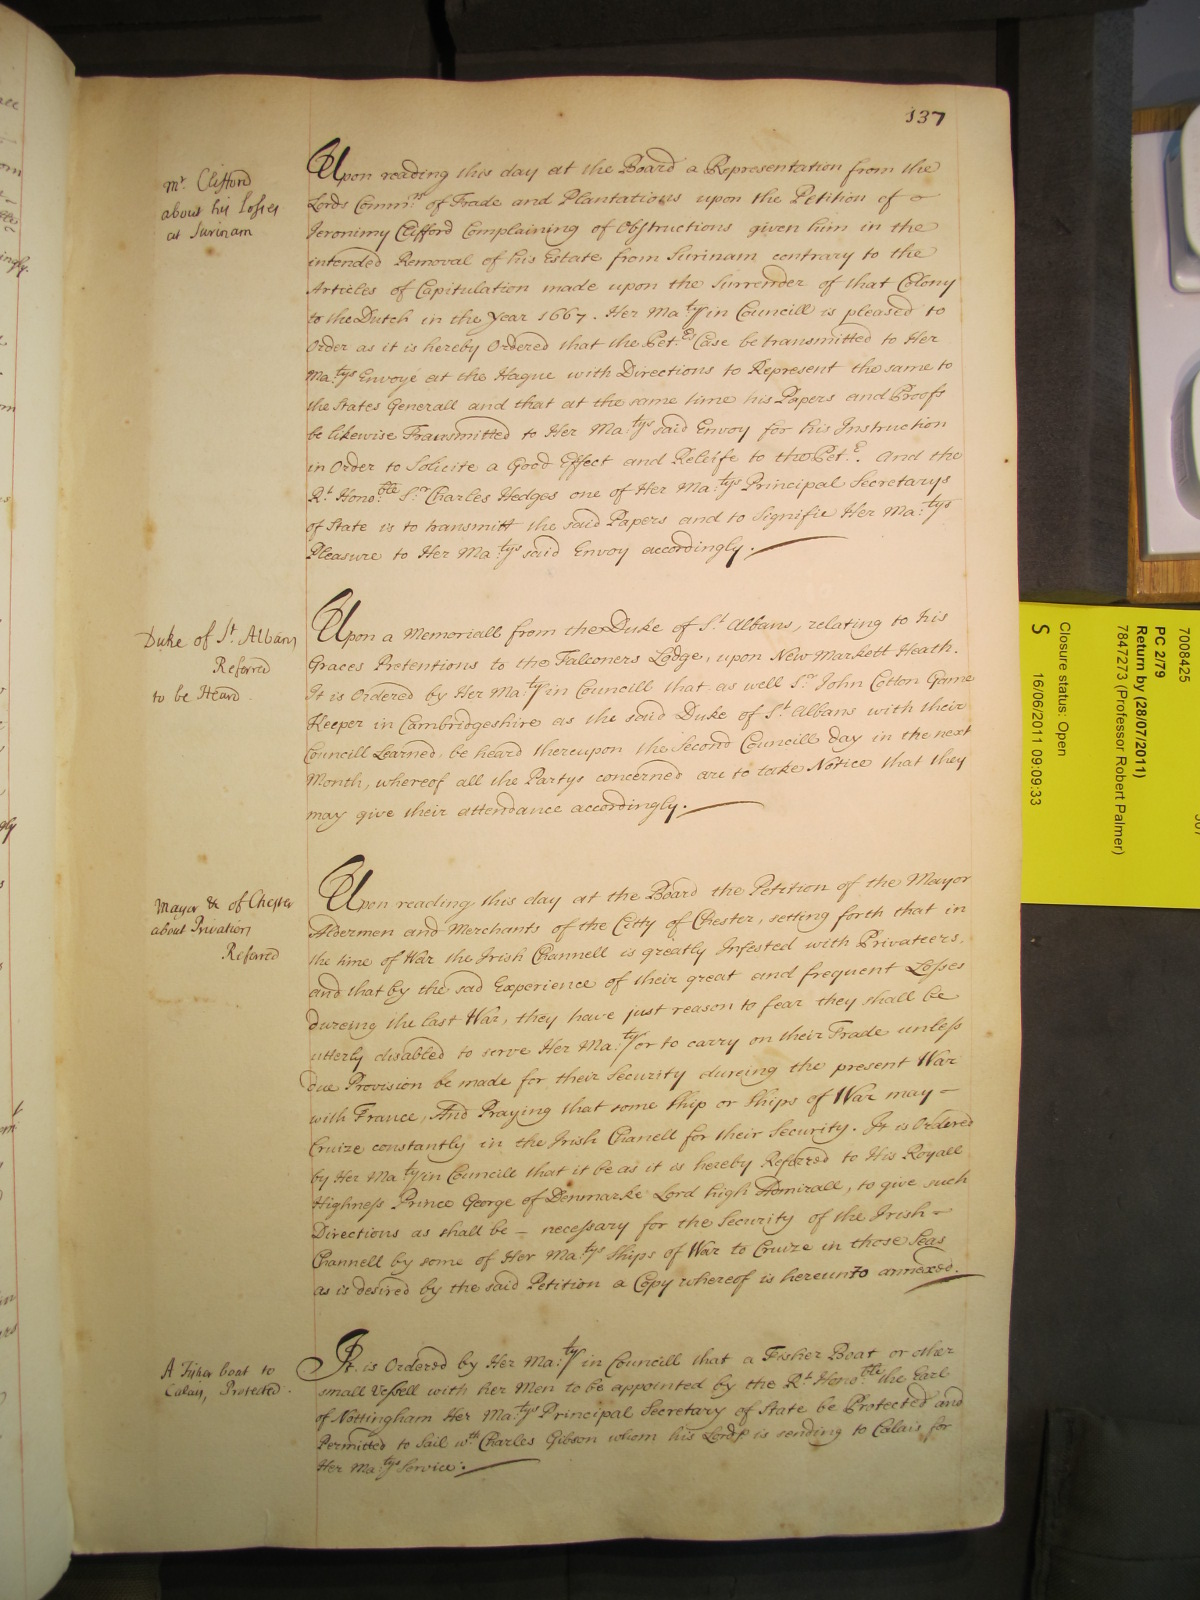 137
Mr. Clifford
about his Losses
at Surinam
Upon reading this day at the Board a Representation from the
Lords Commrs of Trade and Plantations upon the Petition of
Jeronimy Clifford Complaining of Obstructions given him in the
intended Removal of his Estate from Surinam contrary to the
Articles of Capitulation made upon the Surrender of that Colony
to the Dutch in the Year 1667. Her Ma:ty in Councill is pleased to
Order as it is hereby Ordered that the Pet:rs Case be transmitted to Her
Ma:tys Envoyé at the Hague with Directions to Represent the same to
the States Generall and that at the same time his Papers and Proofs
be likewise Transmitted to Her Ma:tys said Envoy for his Instruction
in Order to Solicite a Good Effect and Releife to the Pet:r. And the
Rt. Hono:ble Sr. Charles Hedges one of Her Ma:tys Principal Secretarys
of State is to transmitt the said Papers and to Signifie Her Ma:tys
Pleasure to Her Ma:tys said Envoy accordingly.
Duke of St. Albans
Referred
to be Heard
Upon a Memoriall from the Duke of St. Albans, relating to his
Graces Pretentions to the Falconers Lodge, upon New Markett Heath.
It is Ordered by Her Ma:ty in Councill that as well Sr. John Cotton Game
Keeper in Cambridgeshire as the said Duke of St. Albans with their
Councill Learned be heard thereupon the Second Councill day in the next
Month, whereof all the Partys concerned are to take Notice that they
may give their attendance accordingly.
Mayor &c of Chester
about Privation
Referred
Upon reading this day at the Board the Petition of the Mayor
Aldermen and Merchants of the Citty of Chester, setting forth that in
the time of War the Irish Channell is greatly Infested with Privateers,
and that by the sad Experience of their great and frequent Losses
dureing the last War, they have just reason to fear they shall be
utterly disabled to serve Her Ma:ty or to carry on their Trade unless
due Provision be made for their Security dureing the present War
with France, And Praying that some Ship or Ships of War may
Cruize constantly in the Irish Chanell for their Security. It is Ordered
by Her Ma:ty in Councill that it be as it is hereby Referred to His Royall
Highness Prince George of Denmarke Lord high Admirall, to give such
Directions as shall be necessary for the Security of the Irish
Channell by some of Her Ma:tys Ships of War to Cruize in those Seas
as is desired by the said Petition a Copy whereof is hereunto annexed.
A Fisher boat to
Calais, Protected.
It is Ordered by Her Ma:ty in Councill that a Fisher Boat or other
small Vessell with her Men to be appointed by the Rt. Hono:ble the Earl
of Nottingham Her Ma:tys Principal Secretary of State be Protected and
Permitted to Sail wth Charles Gibson whom his Lordp is sending to Calais for
Her Ma:tys Service.
7008425
PC 2/79
Return by (28/07/2011)
7847273 (Professor Robert Palmer)
Closure status: Open
S 16/06/2011 09:09:33